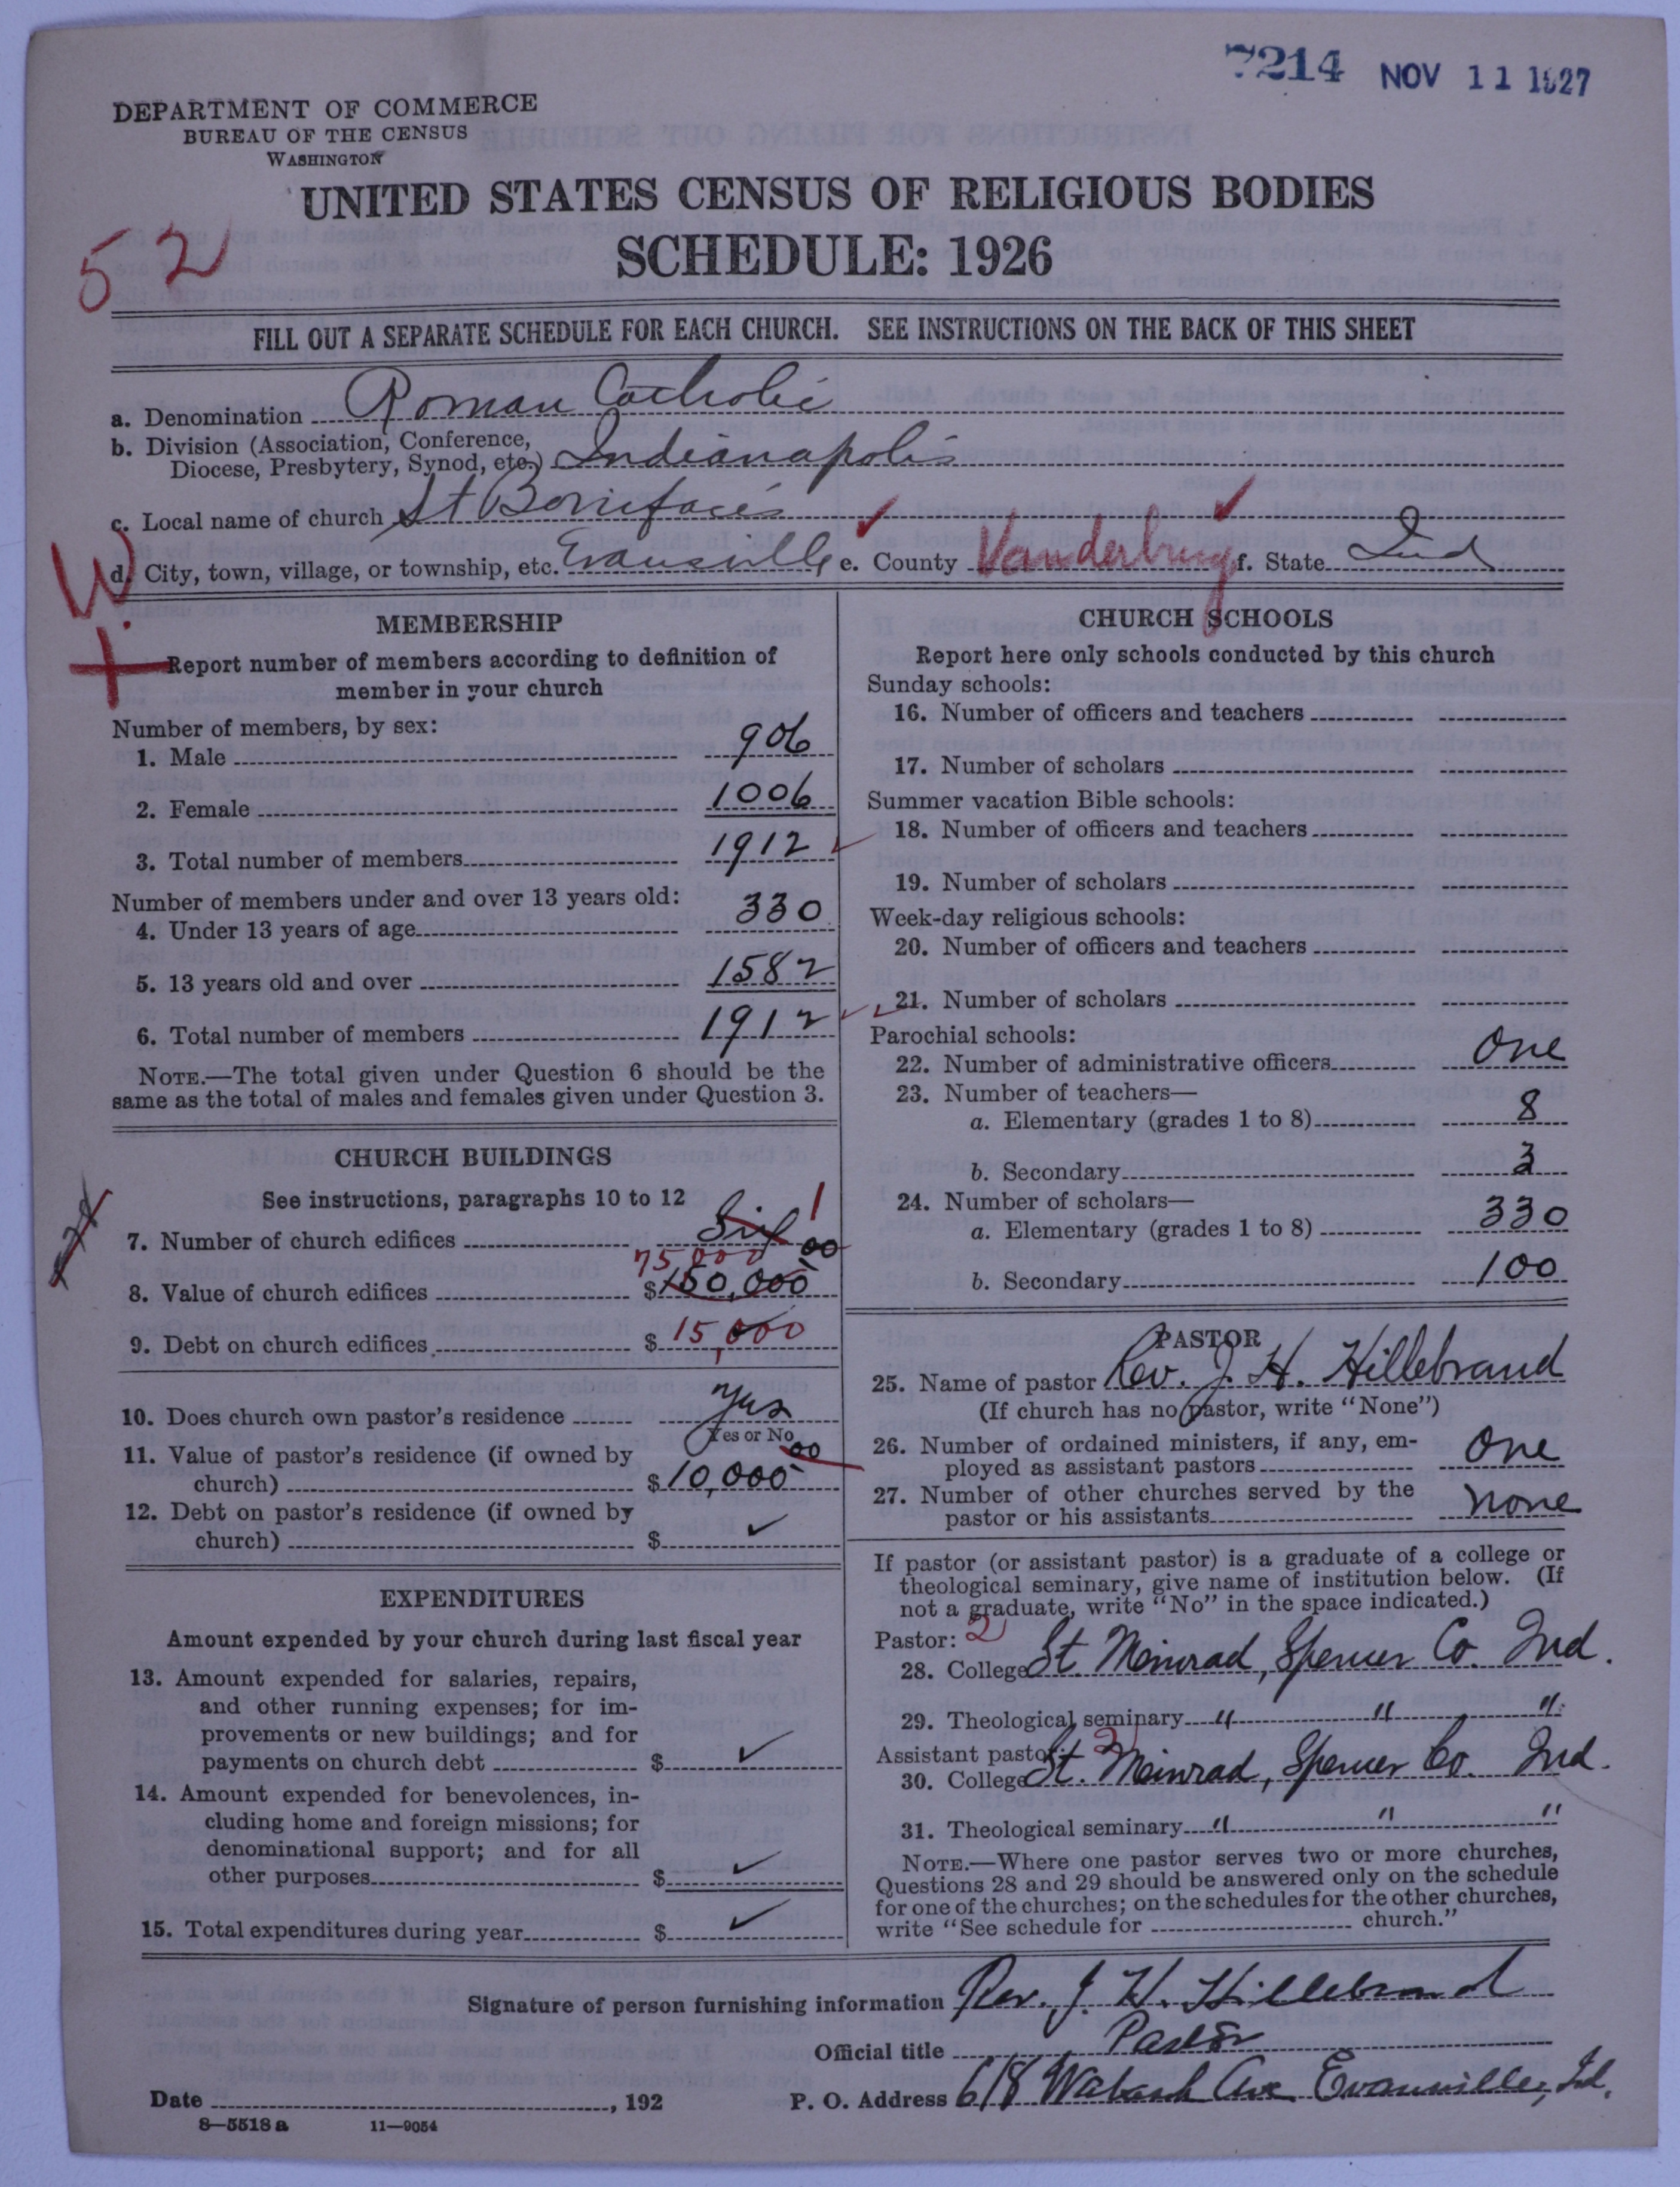 7214 NOV 11 1927
DEPARTMENT OF COMMERCE
BUREAU OF THE CENSUS
WASHINGTON
UNITED STATES CENSUS OF RELIGIOUS BODIES
52
SCHEDULE: 1926
FILL OUT A SEPARATE SCHEDULE FOR EACH CHURCH. SEE INSTRUCTIONS ON THE BACK OF THIS SHEET
a. Denomination Roman Catholic
b. Division (Association, Conference,
Diocese, Presbytery, Synod, etc.) Indianapolis
c. Local name of church St Boniface's
W
d. City, town, village, or township, etc. Evansville e. County Vanderburg f. State Ind
MEMBERSHIP
Report number of members according to definition of
member in your church
Number of members, by sex:
1. Male 906
2. Female 1006
3. Total number of members 1912
Number of members under and over 13 years old:
4. Under 13 years of age 330
5. 13 years old and over 1582
6. Total number of members 1912
NOTE.—The total given under Question 6 should be the
same as the total of males and females given under Question 3.
CHURCH BUILDINGS
See instructions, paragraphs 10 to 12
7. Number of church edifices Six 1
75000
8. Value of church edifices $150,000 00
9. Debt on church edifices $ 15,000
10. Does church own pastor's residence Yes
Yes or No
11. Value of pastor's residence (if owned by
church) $10,000 00
12. Debt on pastor's residence (if owned by
church) $ ✓
EXPENDITURES
Amount expended by your church during last fiscal year
13. Amount expended for salaries, repairs,
and other running expenses; for im-
provements or new buildings; and for
payments on church debt $ ✓
14. Amount expended for benevolences, in-
cluding home and foreign missions; for
denominational support; and for all
other purposes $ ✓
15. Total expenditures during year $ ✓
CHURCH SCHOOLS
Report here only schools conducted by this church
Sunday schools:
16. Number of officers and teachers
17. Number of scholars
Summer vacation Bible schools:
18. Number of officers and teachers
19. Number of scholars
Week-day religious schools:
20. Number of officers and teachers
21. Number of scholars
Parochial schools:
22. Number of administrative officers One
23. Number of teachers—
a. Elementary (grades 1 to 8) 8
b. Secondary 3
24. Number of scholars—
a. Elementary (grades 1 to 8) 330
b. Secondary 100
PASTOR
25. Name of pastor Rev. J. H. Hillebrand
(If church has no pastor, write "None")
26. Number of ordained ministers, if any, em-
ployed as assistant pastors One
27. Number of other churches served by the
pastor or his assistants none
If pastor (or assistant pastor) is a graduate of a college or
theological seminary, give name of institution below. (If
not a graduate, write "No" in the space indicated.)
Pastor: 2
28. College St Meinrad, Spencer Co. Ind.
29. Theological seminary " " "
Assistant pastor: 2
30. College St. Meinrad, Spencer Co. Ind.
31. Theological seminary " " "
NOTE.—Where one pastor serves two or more churches,
Questions 28 and 29 should be answered only on the schedule
for one of the churches; on the schedules for the other churches,
write "See schedule for church."
Signature of person furnishing information Rev. J. H. Hillebrand
Official title Pastor
Date , 192 P. O. Address 618 Wabash Ave Evansville, Ind.
8—5518a 11—9054